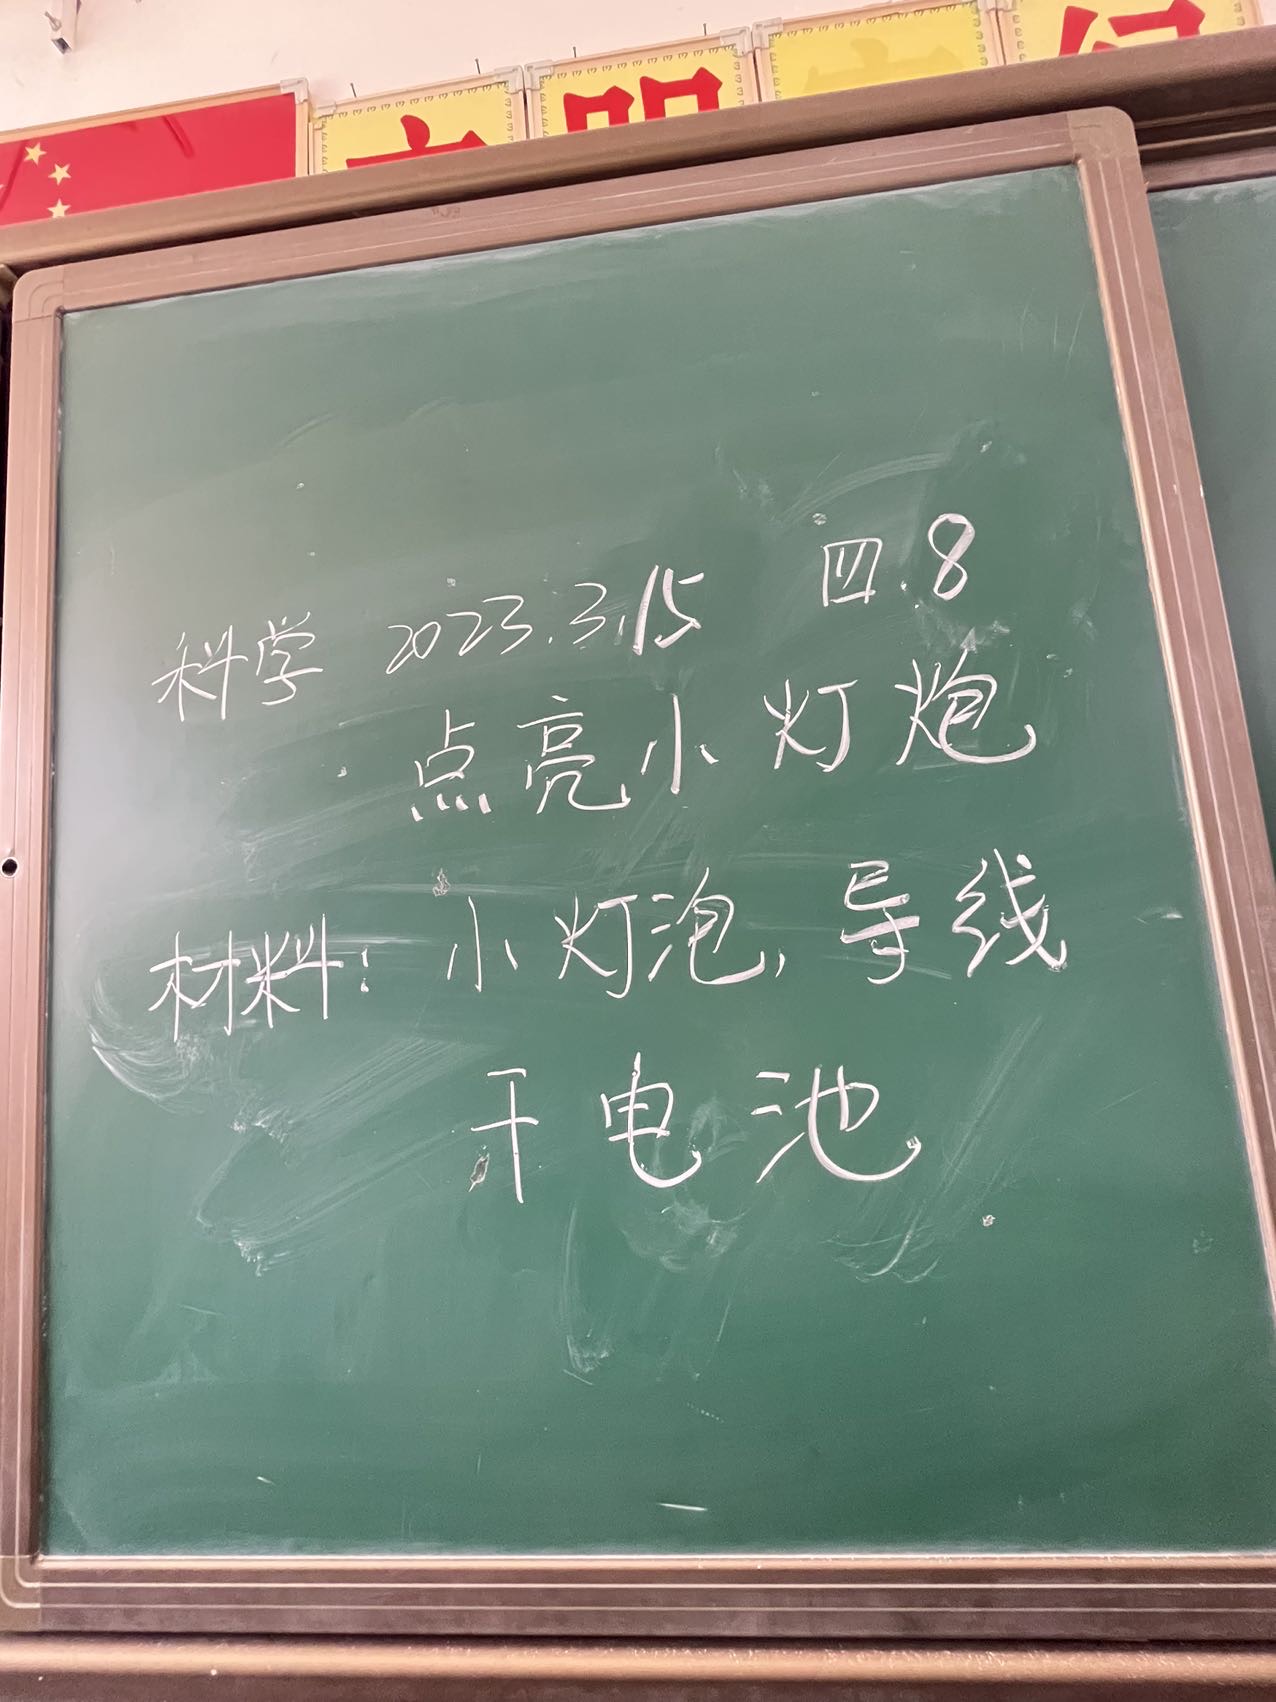 科学 2023.3.15 四.8
点亮小灯炮
材料：小灯泡，导线
干电池